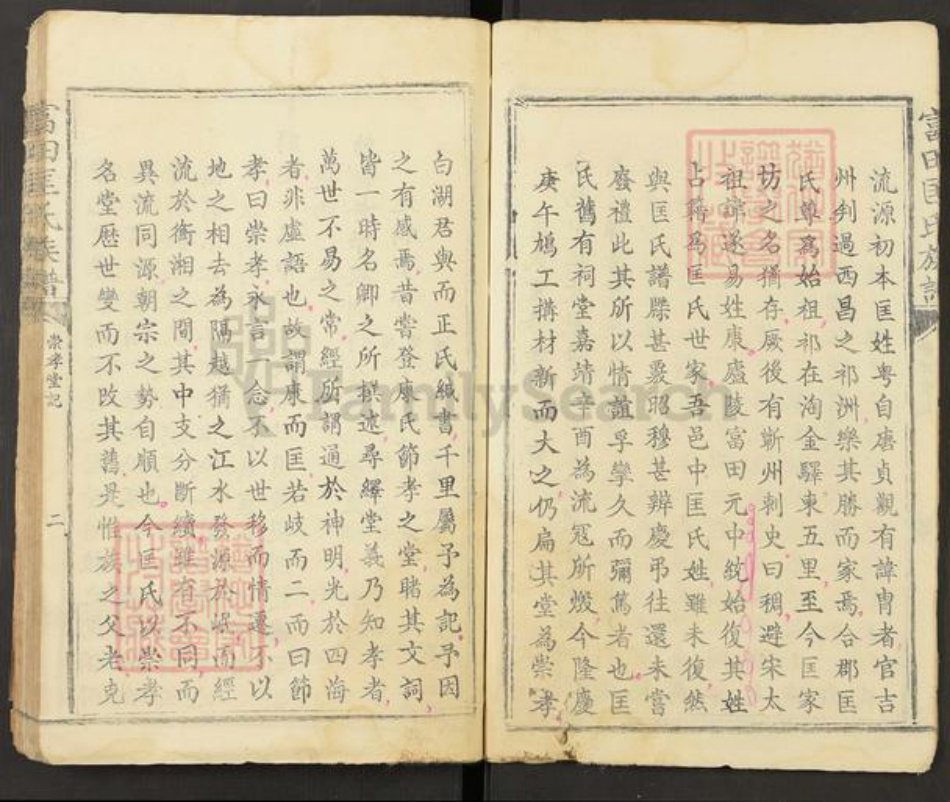 流源初本匡姓粤自唐貞觀有諱胄者官吉
州判過西昌之祁洲樂其勝而家焉合郡匡
氏尊爲始祖祁在淘金驛東五里至今匡家
坊之名猶存厥後有蘄州刺史曰稠避宋太
祖諱遂易姓康廬陵富田元中統始復其姓
占籍爲匡氏世家吾邑中匡氏姓雖未復然
與匡氏譜牒甚覈昭穆甚辨慶弔往還未嘗
廢禮此其所以情誼孚孿久而彌篤者也匡
氏舊有祠堂嘉靖辛酉為流冦所燬今隆慶
庚午鳩工搆材新而大之仍扁其堂為崇孝
白湖君與而正氏緘書千里屬予為記予因
之有感焉昔嘗登康氏節孝之堂睹其文詞
皆一時名卿之所撰述尋繹堂義乃知孝者
萬世不易之常經所謂通於神明光於四海
者非虛語也故謂康而匡若歧而二而曰節
孝曰崇孝永言一念不以世移而情遷不以
地之相去為隔越猶之江水發源於岷而經
流於衡湘之間其中支分斷續雖有不同而
異流同源朝宗之勢自順也今匡氏以崇孝
名堂歷世變而不改其舊是惟族之父老克
富田匡氏族譜
崇孝堂記
二
FamilySearch